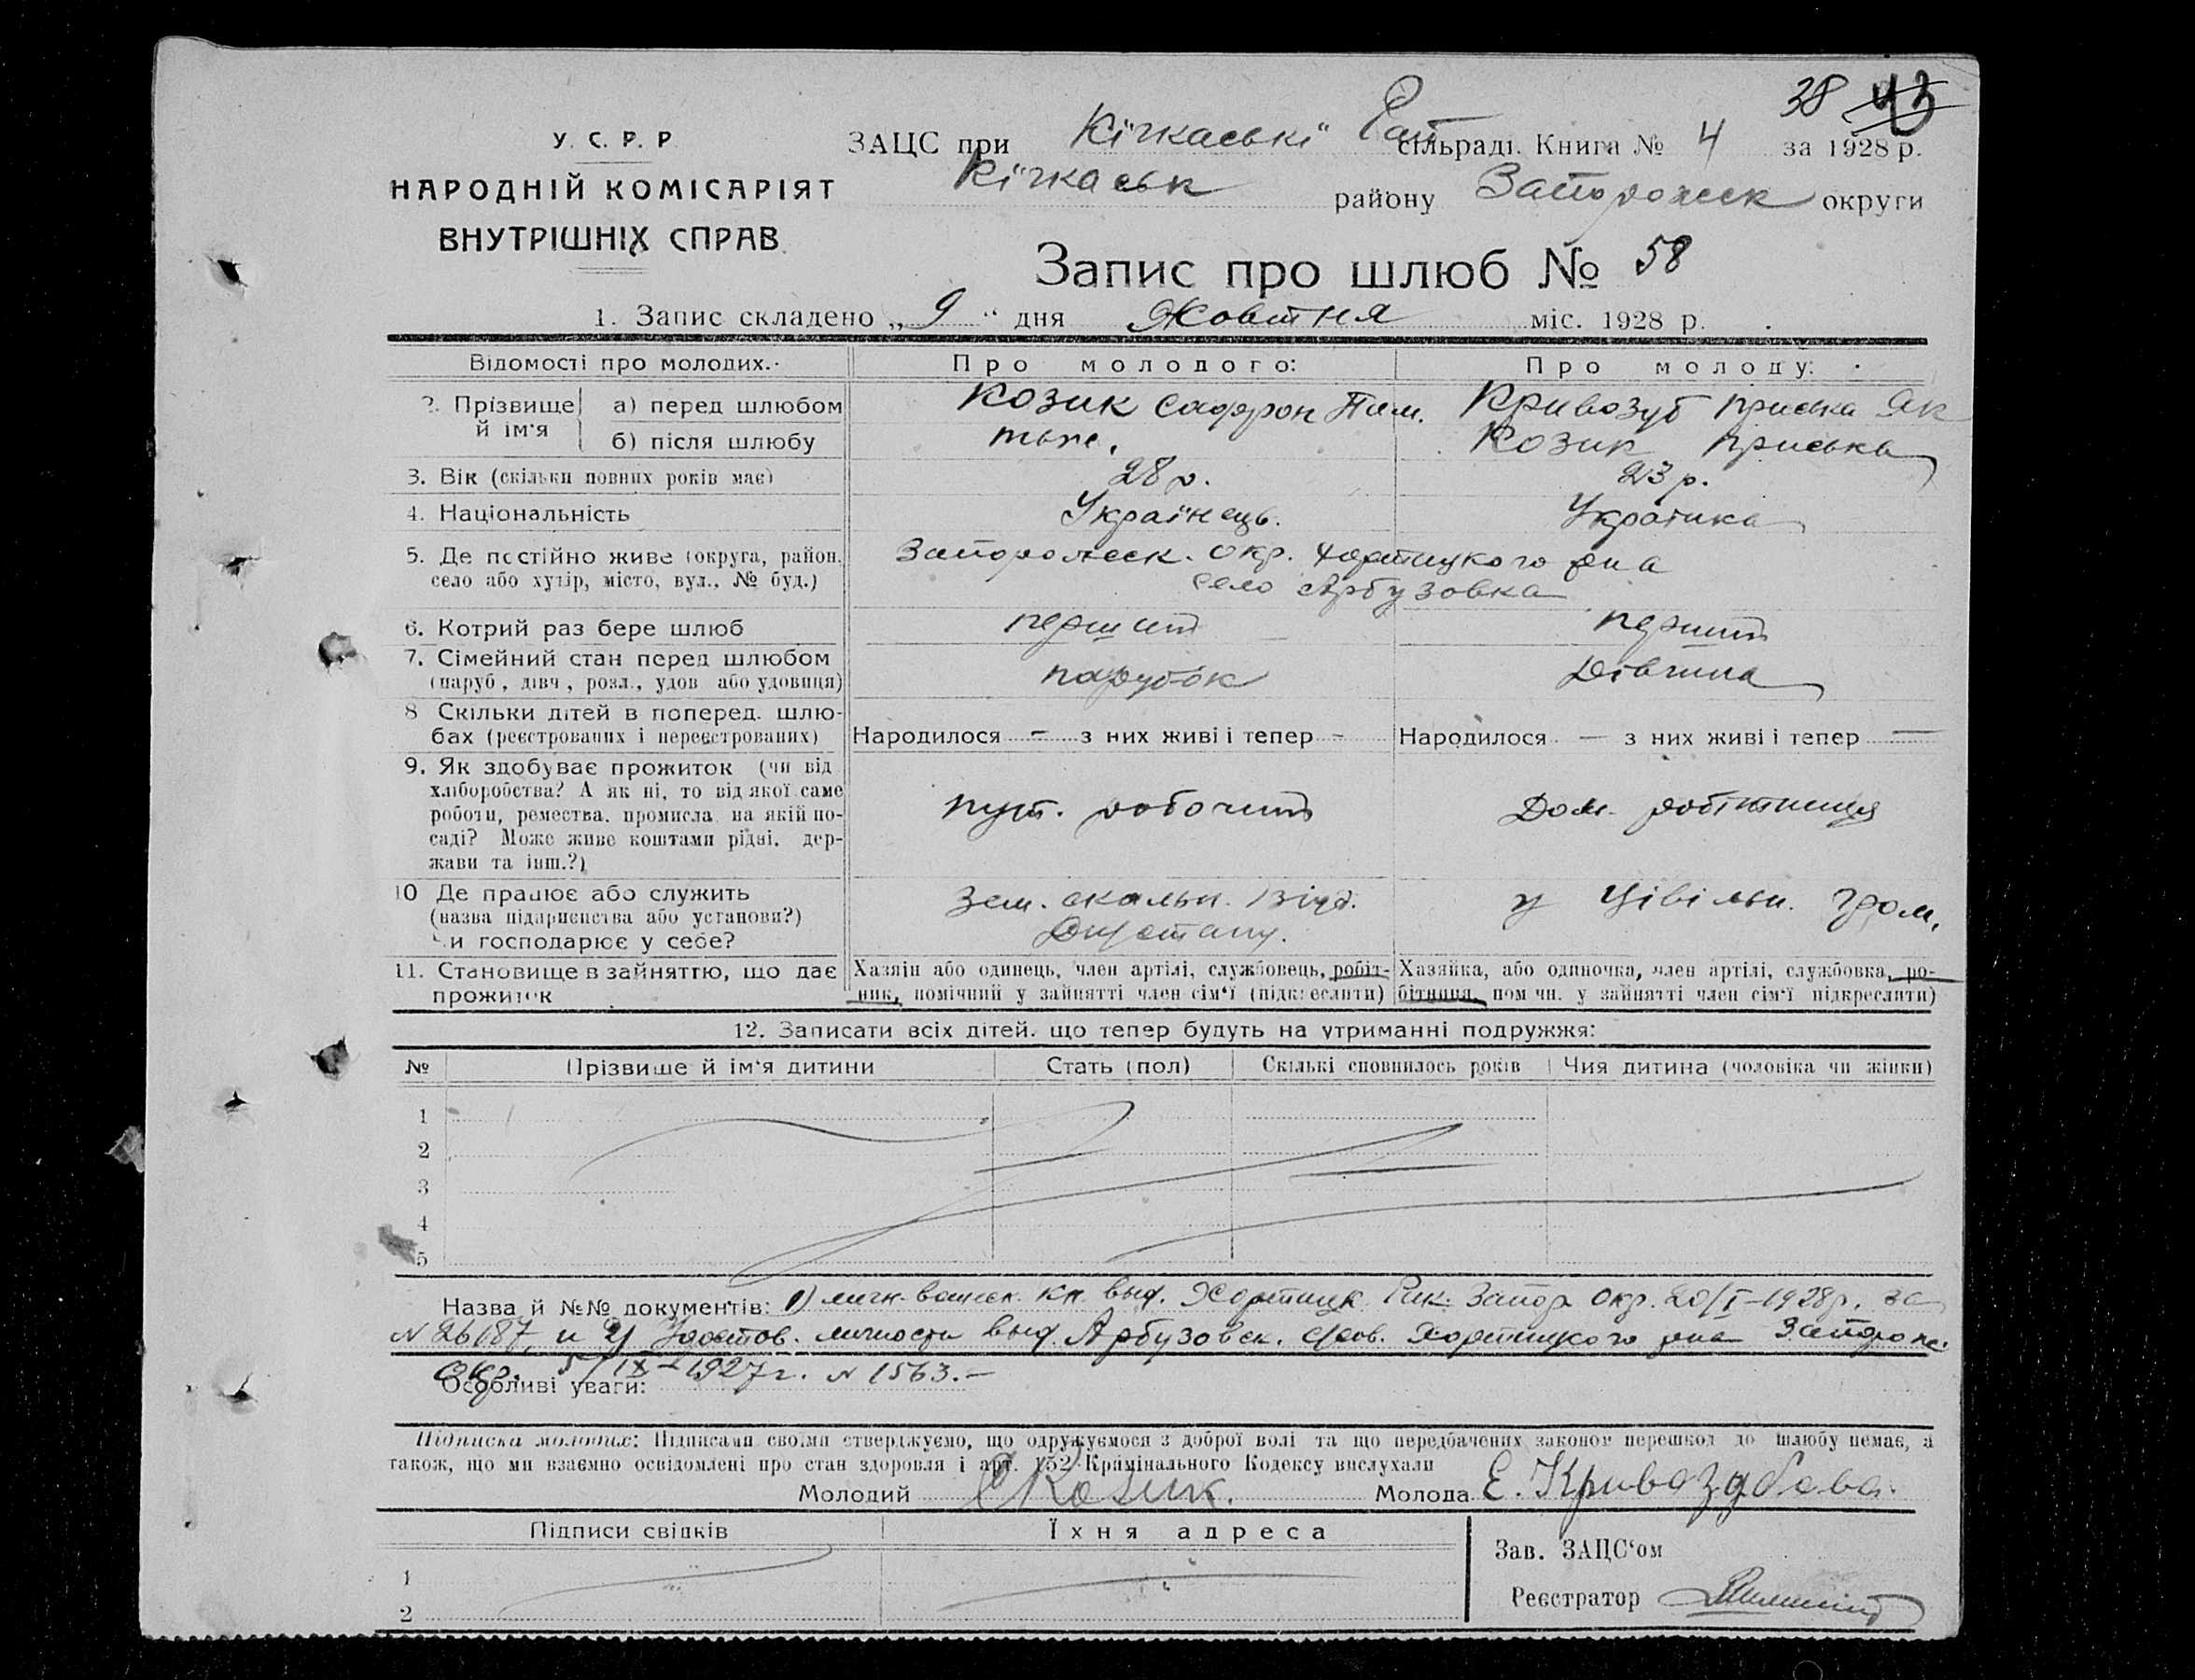 38 43
У. С. Р. Р.
НАРОДНІЙ КОМІСАРІЯТ
ВНУТРІШНІХ СПРАВ
ЗАЦС при Кічкаські Рай сільраді. Книга № 4 за 1928 р.
Кічкаськ району Запорожск округи
Запис про шлюб № 58
1. Запис складено „9“ дня Жовтня міс. 1928 р.
Відомості про молодих. Про молодого: Про молоду:
2. Прізвище й ім'я а) перед шлюбом Козик Сафрон Пим. Кривозуб Приська Як
б) після шлюбу тьже. Козик Приська
3. Вік (скільки повних років має) 28 р. 23 р.
4. Національність Українець. Українка
5. Де постійно живе (округа, район, Запорожск. окр. Хортицкого рна
село або хутір, місто, вул., № буд.) село Арбузовка
6. Котрий раз бере шлюб перший перший
7. Сімейний стан перед шлюбом
(паруб, дівч, розл., удов або удовиця) парубок Дівчина
8 Скільки дітей в поперед. шлю-
бах (реєстрованих і нереєстрованих) Народилося — з них живі і тепер — Народилося — з них живі і тепер —
9. Як здобуває прожиток (чи від
хліборобства? А як ні, то від якої саме
роботи, ремества, промисла на якій по- робочий Дом. робітниця
саді? Може живе коштами рідні, дер-
жави та інш.?)
10 Де працює або служить Зем. скальн. Відд. у Цівільн. Гром.
(назва підприємства або установи?)
Чи господарює у себе?
11. Становище в зайняттю, що дає Хазяїн або одинець, член артілі, службовець, робіт- Хазяйка, або одиночка, член артілі, службовка, ро-
прожиток ник, помічний у зайнятті член сім'ї (підкреслити) бітниця, пом чн. у зайнятті член сім'ї підкреслити)
12. Записати всіх дітей, що тепер будуть на утриманні подружжя:
№ Прізвище й ім'я дитини Стать (пол) Скількі сповнилось років Чия дитина (чоловіка чи жінки)
1
2
3
4
5
Назва й №№ документів: 1) кн. выд. Хортицк. Рик. Запор окр. 20/I-1928р. за
№ 26187, и 2) Удостов. личности выд. Арбузовск. с/сов. Хортицкого рна Запорож.
окр. 5/IX-1927г. № 1563.—
Особливі уваги:
Підписка молодих: Підписами своїми стверджуємо, що одружуємося з доброї волі та що передбачених законом перешкод до шлюбу немає, а
також, що ми взаємно освідомлені про стан здоровля і арт. 152 Крімінального Кодексу вислухали
Молодий Козик. Молода Е. Кривозубова.
Підписи свідків Їхня адреса
Зав. ЗАЦС'ом
1
Реєстратор
2